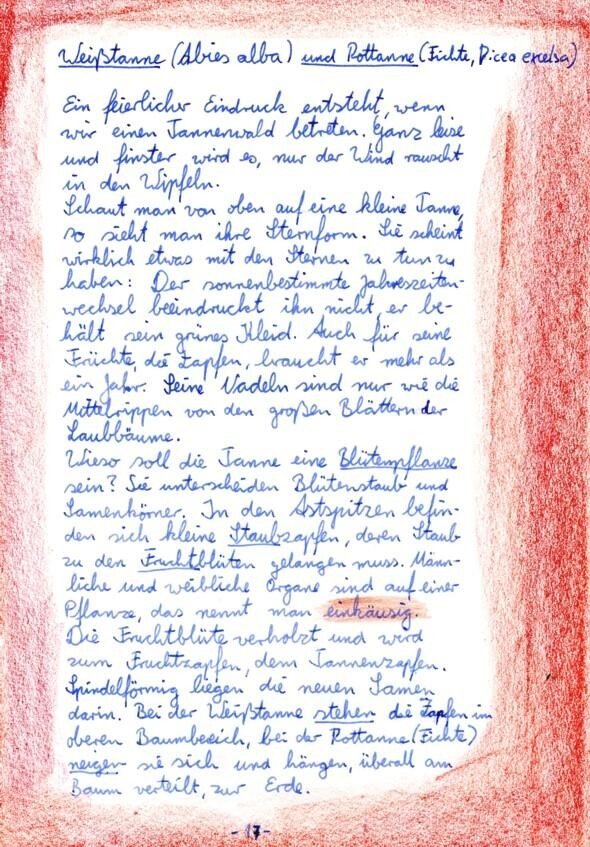 Weißtanne (Abies alba) und Rottanne (Fichte, Picea excelsa)
Ein feierlicher Eindruck entsteht, wenn
wir einen Tannenwald betreten. Ganz leise
und finster wird es, nur der Wind rauscht
in den Wipfeln.
Schaut man von oben auf eine kleine Tanne,
so sieht man ihre Sternform. Sie scheint
wirklich etwas mit den Sternen zu tun zu
haben: Der sonnenbestimmte Jahreszeiten-
wechsel beeindruckt ihn nicht, er be-
hält sein grünes Kleid. Auch für seine
Früchte, die Zapfen, braucht er mehr als
ein Jahr. Seine Nadeln sind nur wie die
Mittelrippen von den großen Blättern der
Laubbäume.
Wieso soll die Tanne eine Blütenpflanze
sein? Sie unterscheiden Blütenstaub und
Samenkörner. In den Astspitzen befin-
den sich kleine Staubzapfen, deren Staub
zu den Fruchtblüten gelangen muss. Männ-
liche und weibliche Organe sind auf einer
Pflanze, das nennt man einhäusig.
Die Fruchtblüte verholzt und wird
zum Fruchtzapfen, dem Tannenzapfen.
Spindelförmig liegen die neuen Samen
darin. Bei der Weißtanne stehen die Zapfen im
oberen Baumbereich, bei der Rottanne (Fichte)
neigen sie sich und hängen, überall am
Baum verteilt, zur Erde.
- 17 -